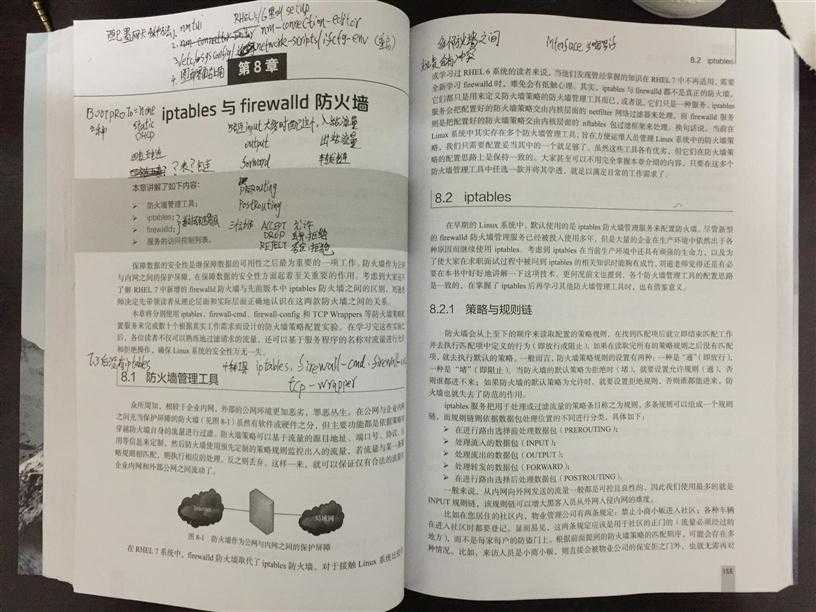 RHEL5/6里的 setup
1. nmtui
2. nm-connection-editor
network-scripts/ifcfg-env
第 8 章
iptables 与 firewalld 防火墙
BOOTPROTO=none
static
DHCP
input
output
forward
PREROUTING
POSTROUTING
ACCEPT 允许
DROP
REJECT
本章讲解了如下内容：
➢ 防火墙管理工具；
➢ iptables；
➢ firewalld；
➢ 服务的访问控制列表。
保障数据的安全性是继保障数据的可用性之后最为重要的一项工作。防火墙作为公
与内网之间的保护屏障，在保障数据的安全性方面起着至关重要的作用。考虑到大家还
了解 RHEL 7 中新增的 firewalld 防火墙与先前版本中 iptables 防火墙之间的区别，刘遄老
师决定先带领读者从理论层面和实际层面正确地认识在这两款防火墙之间的关系。
本章将分别使用 iptables、firewall-cmd、firewall-config 和 TCP Wrappers 等防火墙策略配
置服务来完成数十个根据真实工作需求而设计的防火墙策略配置实验。在学习完这些实验之
后，各位读者不仅可以熟练地过滤请求的流量，还可以基于服务程序的名称对流量进行允
和拒绝操作，确保 Linux 系统的安全性万无一失。
iptables, firewall-cmd
tcp-wrapper
8.1 防火墙管理工具
众所周知，相较于企业内网，外部的公网环境更加恶劣，罪恶丛生。在公网与企业内网
之间充当保护屏障的防火墙（见图 8-1）虽然有软件或硬件之分，但主要功能都是依据策略对
穿越防火墙自身的流量进行过滤。防火墙策略可以基于流量的源目地址、端口号、协议、
用等信息来定制，然后防火墙使用预先定制的策略规则监控出入的流量，若流量与某一条
规则相匹配，则执行相应的处理，反之则丢弃。这样一来，就可以保证仅有合法的流量在
企业内网和外部公网之间流动了。
Internet
局域网
图 8-1 防火墙作为公网与内网之间的保护屏障
在 RHEL 7 系统中，firewalld 防火墙取代了 iptables 防火墙。对于接触 Linux 系统比较
interface
8.2 iptables
或学习过 RHEL 6 系统的读者来说，当他们发现曾经掌握的知识在 RHEL 7 中不再适用，需要
全新学习 firewalld 时，难免会有抵触心理。其实，iptables 与 firewalld 都不是真正的防火墙，
它们都只是用来定义防火墙策略的防火墙管理工具而已，或者说，它们只是一种服务。iptables
服务会把配置好的防火墙策略交由内核层面的 netfilter 网络过滤器来处理，而 firewalld 服务
则是把配置好的防火墙策略交由内核层面的 nftables 包过滤框架来处理。换句话说，当前在
Linux 系统中其实存在多个防火墙管理工具，旨在方便运维人员管理 Linux 系统中的防火墙策
略，我们只需要配置妥当其中的一个就足够了。虽然这些工具各有优劣，但它们在防火墙策
略的配置思路上是保持一致的。大家甚至可以不用完全掌握本章介绍的内容，只要在这多个
防火墙管理工具中任选一款并将其学透，就足以满足日常的工作需求了。
8.2 iptables
在早期的 Linux 系统中，默认使用的是 iptables 防火墙管理服务来配置防火墙。尽管新型
的 firewalld 防火墙管理服务已经被投入使用多年，但是大量的企业在生产环境中依然出于各
种原因而继续使用 iptables。考虑到 iptables 在当前生产环境中还具有顽强的生命力，以及为
了使大家在求职面试过程中被问到 iptables 的相关知识时能胸有成竹，刘遄老师觉得还是有必
要在本书中好好地讲解一下这项技术。更何况前文也提到，各个防火墙管理工具的配置思路
是一致的，在掌握了 iptables 后再学习其他防火墙管理工具时，也有借鉴意义。
8.2.1 策略与规则链
防火墙会从上至下的顺序来读取配置的策略规则，在找到匹配项后就立即结束匹配工作
并去执行匹配项中定义的行为（即放行或阻止）。如果在读取完所有的策略规则之后没有匹配
项，就去执行默认的策略。一般而言，防火墙策略规则的设置有两种：一种是“通”（即放行），
一种是“堵”（即阻止）。当防火墙的默认策略为拒绝时（堵），就要设置允许规则（通），否
则谁都进不来；如果防火墙的默认策略为允许时，就要设置拒绝规则，否则谁都能进来，防
火墙也就失去了防范的作用。
iptables 服务把用于处理或过滤流量的策略条目称之为规则，多条规则可以组成一个规则
链，而规则链则依据数据包处理位置的不同进行分类，具体如下：
➢ 在进行路由选择前处理数据包（PREROUTING）；
➢ 处理流入的数据包（INPUT）；
➢ 处理流出的数据包（OUTPUT）；
➢ 处理转发的数据包（FORWARD）；
➢ 在进行路由选择后处理数据包（POSTROUTING）。
一般来说，从内网向外网发送的流量一般都是可控且良性的，因此我们使用最多的就是
INPUT 规则链，该规则链可以增大黑客人员从外网入侵内网的难度。
比如在您居住的社区内，物业管理公司有两条规定：禁止小商小贩进入社区；各种车辆
在进入社区时都要登记。显而易见，这两条规定应该是用于社区的正门的（流量必须经过的
地方），而不是每家每户的防盗门上。根据前面提到的防火墙策略的匹配顺序，可能会存在多
种情况。比如，来访人员是小商小贩，则直接会被物业公司的保安拒之门外，也就无需再对
155